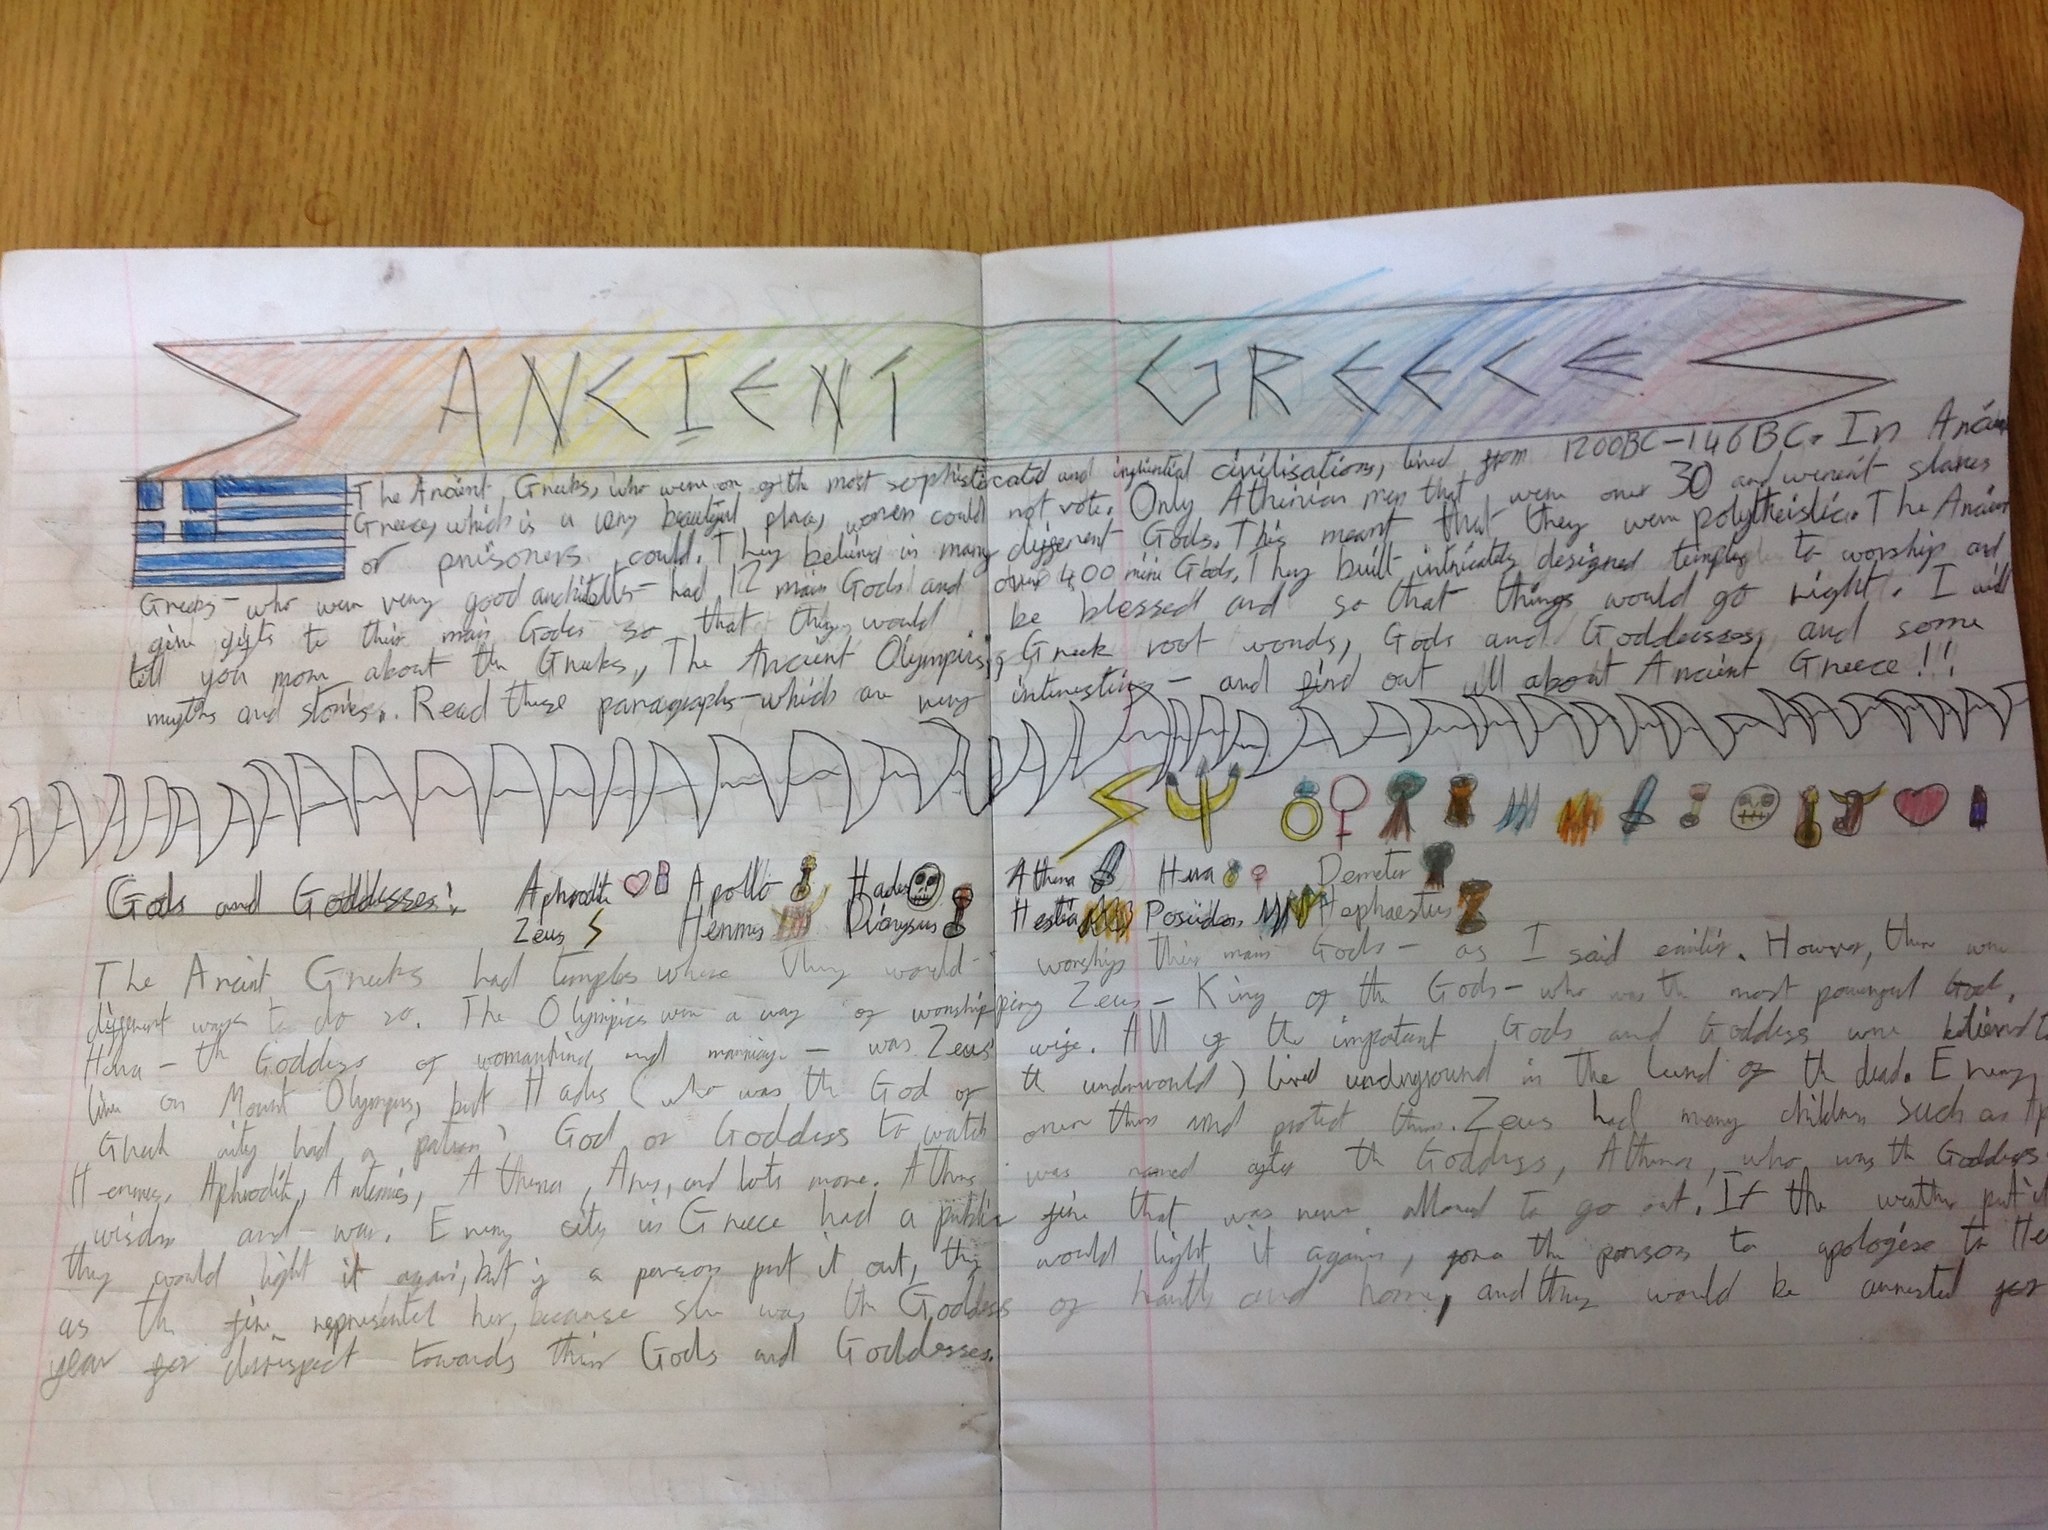 ANCIENT GREECE
The Ancient Greeks, who were on of the most sophisticated and influential civilisations, lived from 1200BC-146BC. In Ancient
Greece, which is a very beautiful place, women could not vote. Only Athinian men that were over 30 and weren't slaves
or prisoners could. They believed in many different Gods. This meant that they were polytheistic. The Ancient
Greeks - who were very good architects - had 12 main Gods and over 400 mini Gods. They built intricately designed temples to worship and
give gifts to their main Gods so that they would be blessed and so that things would go right. I will
tell you more about the Greeks, The Ancient Olympics, Greek root words, Gods and Goddesses, and some
myths and stories. Read these paragraphs - which are very interesting - and find out all about Ancient Greece!!
Gods and Goddesses: Aphrodite Apollo Hades Athena Hera Demeter
Zeus Hermes Dionysus Hestia Poseidon Hephaestus
The Ancient Greeks had temples where they would worship their main Gods - as I said earlier. However, there were
different ways to do so. The Olympics were a way of worshipping Zeus - King of the Gods - who was the most powerful God.
Hera - the Goddess of womankind and marriage - was Zeus' wife. All of the important Gods and Goddess were believed to
live on Mount Olympus, but Hades (who was the God of the underworld) lived underground in the Land of the dead. Every
Greek city had a 'patron' God or Goddess to watch over them and protect them. Zeus had many children such as
Hermes, Aphrodite, Artemis, Athena, Ares, and lots more. Athens was named after the Goddess, Athena, who was the Goddess
wisdom and war. Every city in Greece had a public fire that was never allowed to go out. If the weather put it
they would light it again, but if a person put it out, they would light it again, the person to apologise to
as the fire represented her, because she was the Goddess of hearth and home, and they would be arrested for
year for disrespect towards their Gods and Goddesses.